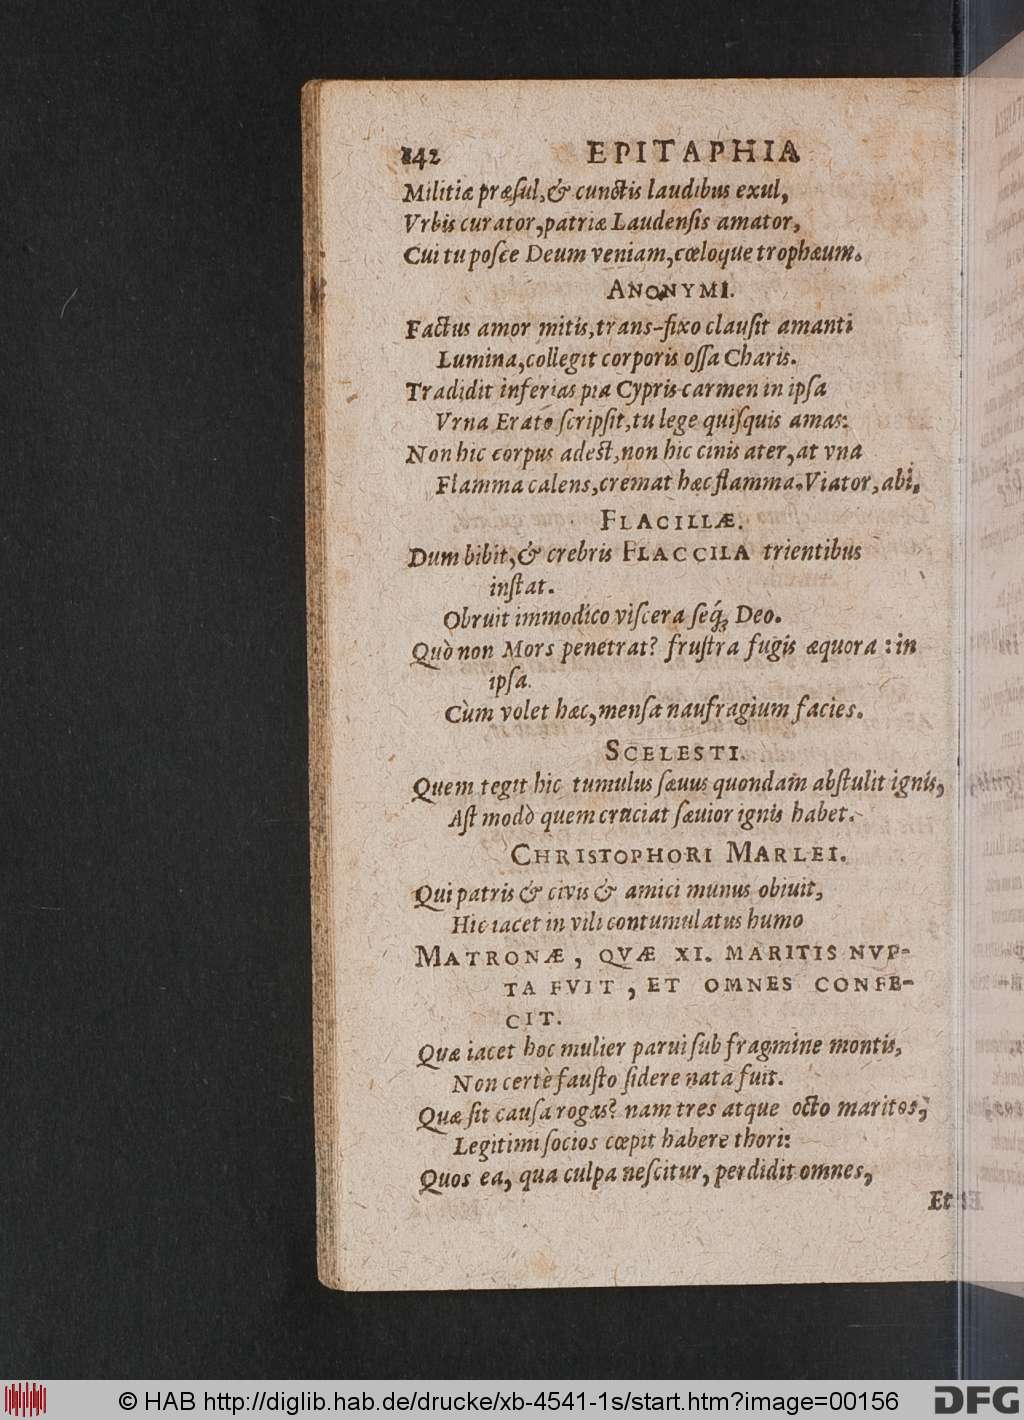 142 EPITAPHIA
Militiæ præſul, & cunctis laudibus exul,
Vrbis curator, patriæ Laudenſis amator,
Cui tu poſce Deum veniam, cœloque trophæum.
ANONYMI.
Factus amor mitis, trans-fixo clauſit amanti
Lumina, collegit corporis oſſa Charis.
Tradidit inferias pia Cypris carmen in ipſa
Vrna Erato ſcripſit, tu lege quiſquis amas:
Non hic corpus adest, non hic cinis ater, at vna
Flamma calens, cremat hæc flamma. Viator, abi.
FLACILLÆ.
Dum bibit, & crebris FLACCILA trientibus
inſtat.
Obruit immodico viſcera ſeq́ꝫ Deo.
Quò non Mors penetrat? fruſtra fugis æquora : in
ipſa.
Cùm volet hæc, menſa naufragium facies.
SCELESTI.
Quem tegit hic tumulus ſæuus quondam abſtulit ignis,
Aſt modò quem cruciat ſæuior ignis habet.
CHRISTOPHORI MARLEI.
Qui patris & civis & amici munus obiuit,
Hic iacet in vili contumulatus humo
MATRONÆ, QVÆ XI. MARITIS NVP-
TA FVIT, ET OMNES CONFE-
CIT.
Quæ iacet hoc mulier parui ſub fragmine montis,
Non certè fauſto ſidere nata fuit.
Quæ ſit cauſa rogas? nam tres atque octo maritos,
Legitimi ſocios cœpit habere thori:
Quos ea, qua culpa neſcitur, perdidit omnes,
Et
© HAB http://diglib.hab.de/drucke/xb-4541-1s/start.htm?image=00156
DFG